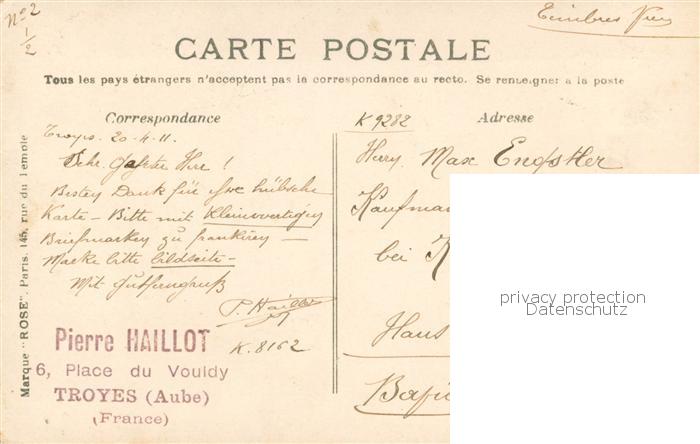 No 2
1/2
Timbres Vues
CARTE POSTALE
Tous les pays étrangers n'acceptent pas la correspondance au recto. Se renseigner à la poste
Correspondance
Adresse
Marque "ROSE". Paris. 145, rue du Temple
Troyes. 20-4-11.
Sehr geehrter Herr !
Besten Dank für Ihre hübsche
Karte – Bitte mit kleinwertigen
Briefmarken zu frankiren –
Marke bitte bildseite –
Mit Gruß
P. Haillot
K. 8162
Pierre HAILLOT
6, Place du Vouldy
TROYES (Aube)
(France)
K 9282
Herrn Max Engstler
Kaufma
bei
Haus
privacy protection
Datenschutz